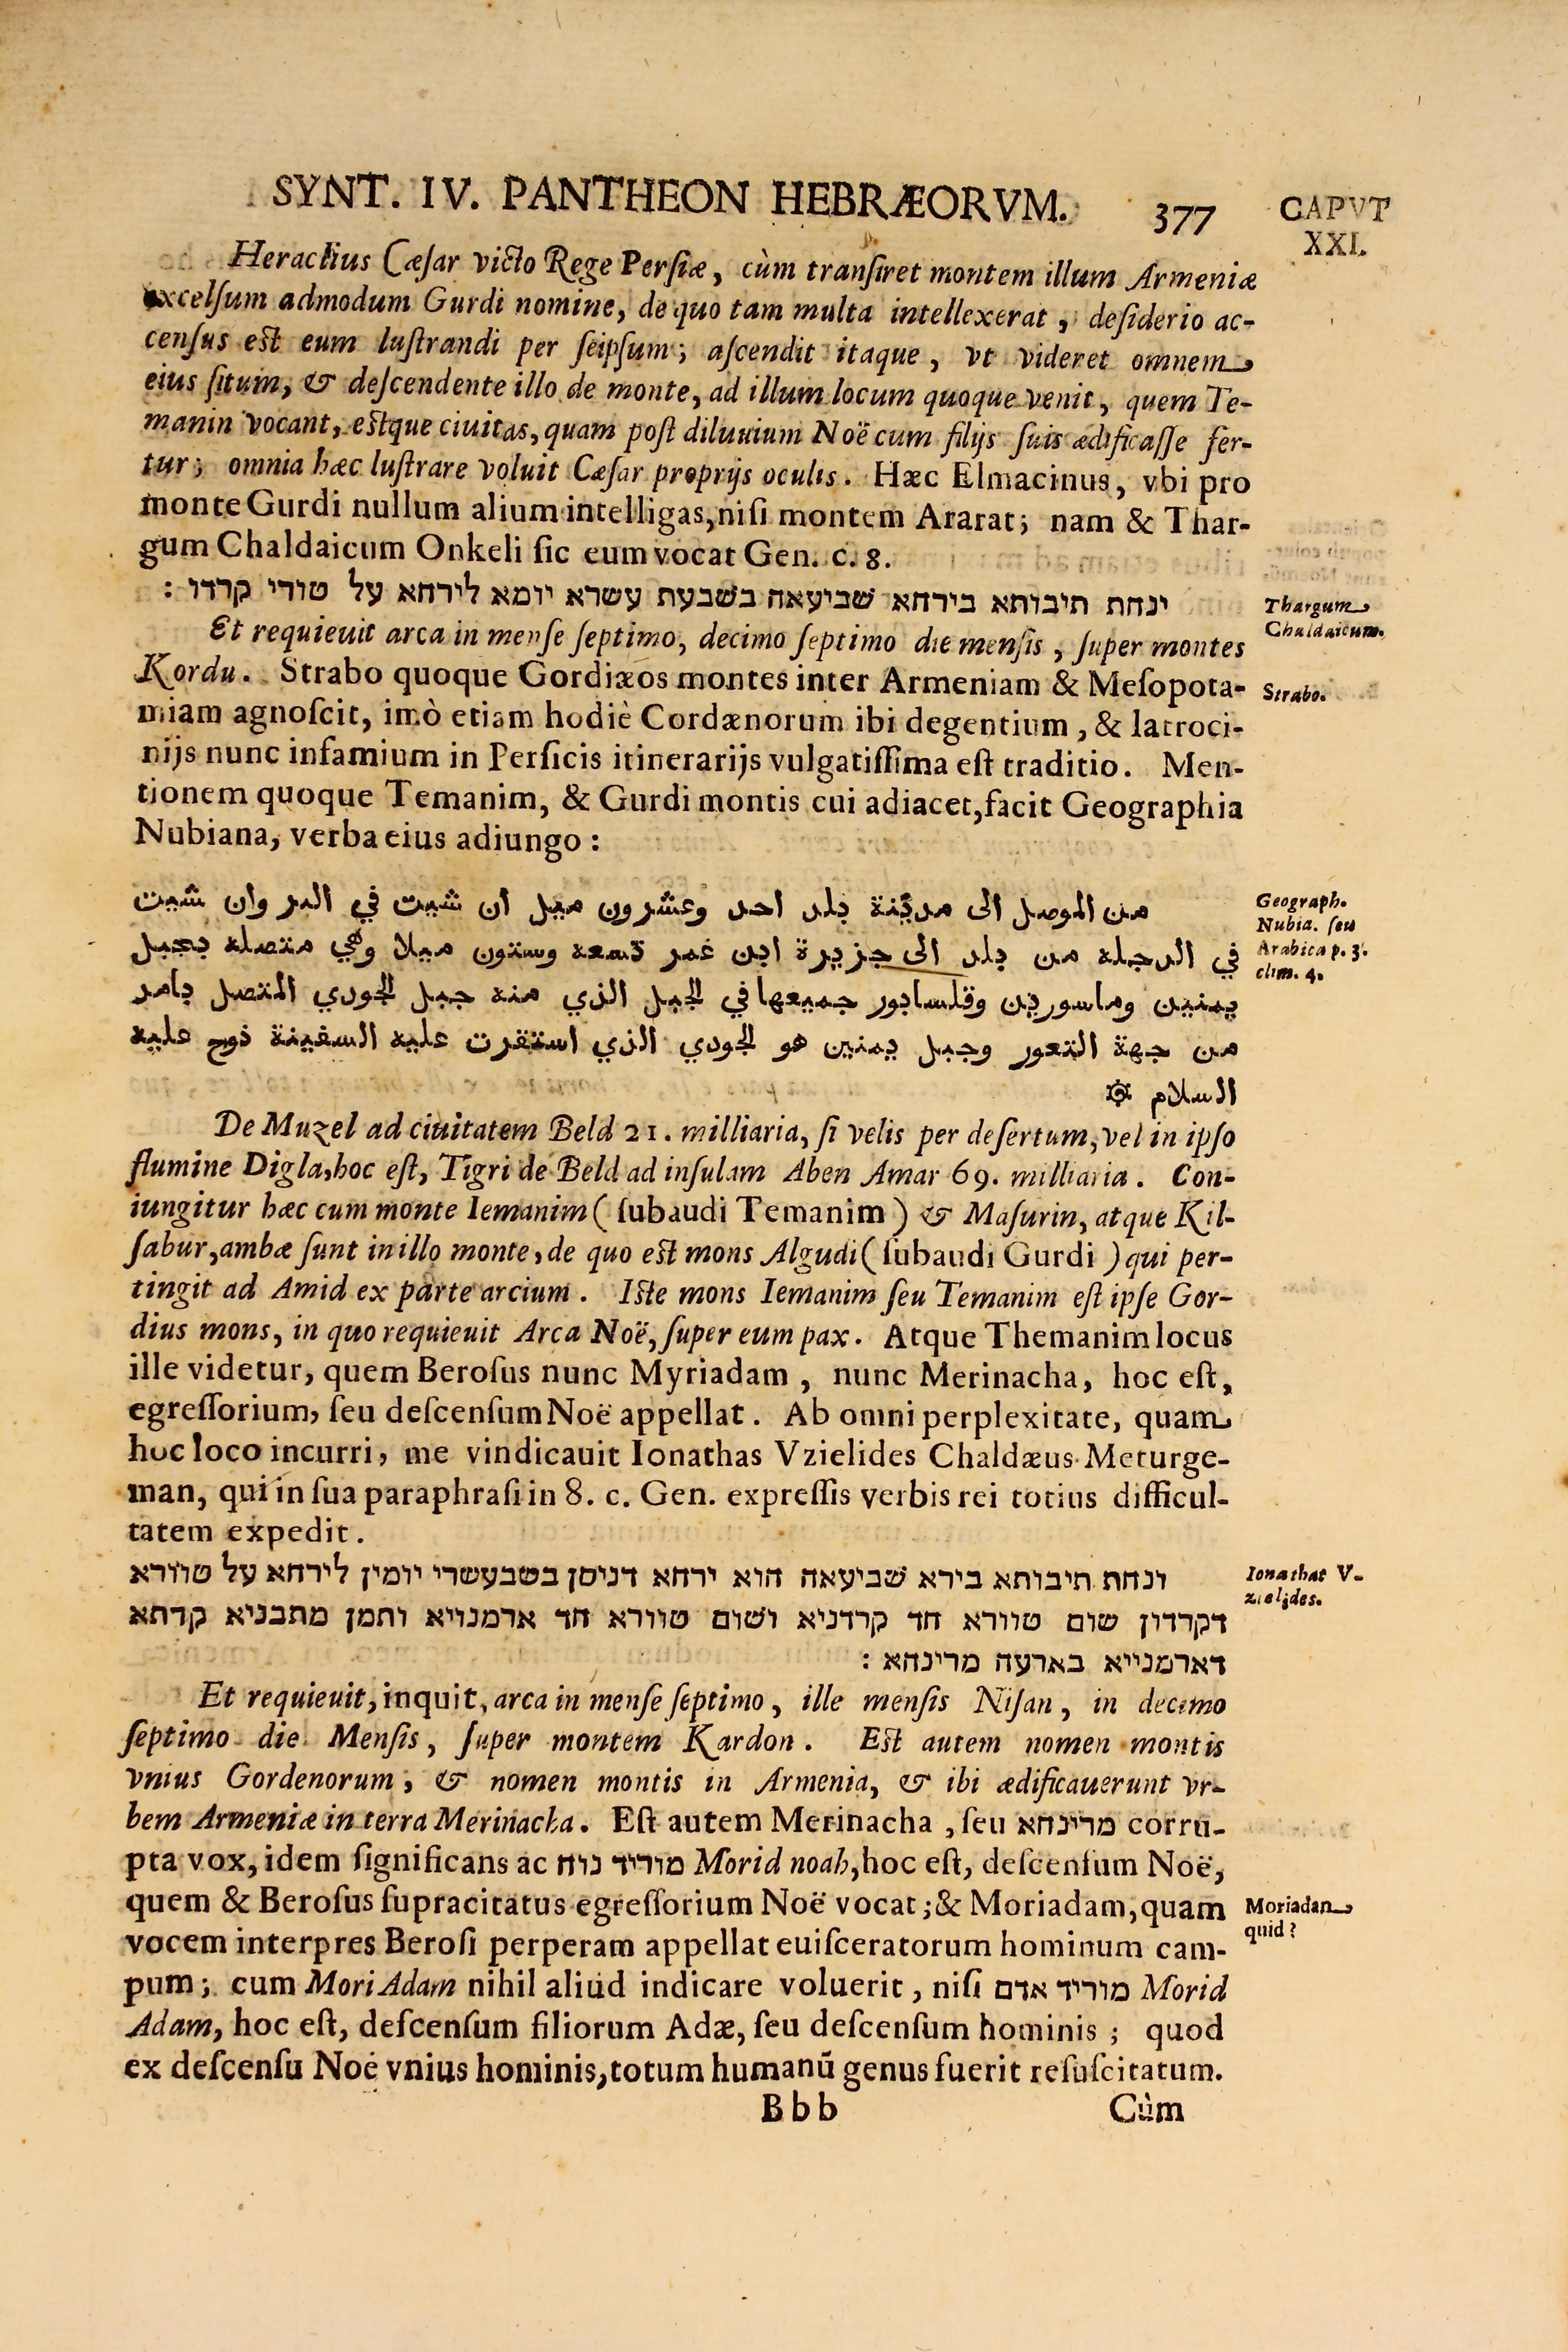 SYNT. IV. PANTHEON HEBRÆORVM. 377
CAPVT
XXI.
Heraclius Cæsar victo Rege Persiæ, cùm transiret montem illum Armeniæ
excelsum admodum Gurdi nomine, de quo tam multa intellexerat, desiderio ac-
census est eum lustrandi per seipsum; ascendit itaque, vt videret omnem
eius situm, & descendente illo de monte, ad illum locum quoque venit, quem Te-
manin vocant, estque ciuitas, quam post diluuium Noë cum filijs suis ædificasse fer-
tur; omnia hæc lustrare voluit Cæsar proprijs oculis. Hæc Elmacinus, vbi pro
monte Gurdi nullum alium intelligas, nisi montem Ararat; nam & Thar-
gum Chaldaicum Onkeli sic eum vocat Gen. c. 8.
ינחת תיבותא בירחא שביעאה בשבעת עשרא יומא לירחא על טורי קרדו :
Thargum
Chaldaicum.
Et requieuit arca in mense septimo, decimo septimo die mensis, super montes
Kordu. Strabo quoque Gordiæos montes inter Armeniam & Mesopota-
Strabo.
miam agnoscit, imò etiam hodiè Cordænorum ibi degentium, & latroci-
nijs nunc infamium in Persicis itinerarijs vulgatissima est traditio. Men-
tionem quoque Temanim, & Gurdi montis cui adiacet, facit Geographia
Nubiana, verba eius adiungo:
من الموصل الى مدينة بلد احد وعشرون ميل أن شيت في البر وان شيت
في الدجله من بلد الى جزيرة ابن عمر تسعه وستون ميلا وهي متصله بجبل
يمنين وماسورين وقلسابور جميعها في الجبل الذي منه جبل الجودي المتصل بامد
من جهة التعور وجبل يمنين هو الجودي الذي استقرت عليه السفينة نوح عليه
السلام ۞
Geograph.
Nubia. seu
Arabica p. 3.
clim. 4.
De Muzel ad ciuitatem Beld 21. milliaria, si velis per desertum, vel in ipso
flumine Digla, hoc est, Tigri de Beld ad insulam Aben Amar 69. milliaria. Con-
iungitur hæc cum monte Iemanim (subaudi Temanim) & Masurin, atque Kil-
sabur, ambæ sunt in illo monte, de quo est mons Algudi (subaudi Gurdi) qui per-
tingit ad Amid ex parte arcium. Iste mons Iemanim seu Temanim est ipse Gor-
dius mons, in quo requieuit Arca Noë, super eum pax. Atque Themanim locus
ille videtur, quem Berosus nunc Myriadam, nunc Merinacha, hoc est,
egressorium, seu descensum Noë appellat. Ab omni perplexitate, quam
hoc loco incurri, me vindicauit Ionathas Vzielides Chaldæus Meturge-
man, qui in sua paraphrasi in 8. c. Gen. expressis verbis rei totius difficul-
tatem expedit.
ונחת תיבותא בירא שביעאה הוא ירחא דניסן בשבעשרי יומין לירחא על טוורא
דקרדון שום טוורא חד קרדניא ושום טוורא חד ארמנויא ותמן מתבניא קרתא
דארמנייא בארעה מרינחא :
Ionathat V-
zielides.
Et requieuit, inquit, arca in mense septimo, ille mensis Nisan, in decimo
septimo die Mensis, super montem Kardon. Est autem nomen montis
vnius Gordenorum, & nomen montis in Armenia, & ibi ædificauerunt vr-
bem Armeniæ in terra Merinacha. Est autem Merinacha, seu מרינחא corru-
pta vox, idem significans ac מוריד נוח Morid noah, hoc est, descensum Noë,
quem & Berosus supracitatus egressorium Noë vocat; & Moriadam, quam
Moriadan
quid?
vocem interpres Berosi perperam appellat euisceratorum hominum cam-
pum; cum Mori Adam nihil aliud indicare voluerit, nisi מוריד אדם Morid
Adam, hoc est, descensum filiorum Adæ, seu descensum hominis; quod
ex descensu Noë vnius hominis, totum humanū genus fuerit resuscitatum.
Bbb Cùm